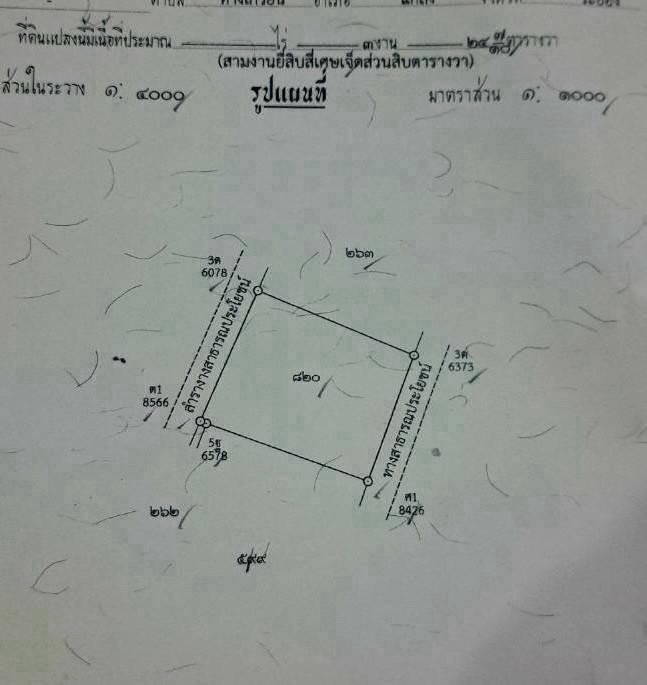 ตำบล ทางเกวียน อำเภอ แกลง จังหวัด ระยอง
ที่ดินแปลงนี้มีเนื้อที่ประมาณ ไร่ ๓ งาน ๒๔ ๗/๑๐ ตารางวา
(สามงานยี่สิบสี่เศษเจ็ดส่วนสิบตารางวา)
ส่วนในระวาง ๑: ๔๐๐๐ รูปแผนที่ มาตราส่วน ๑: ๑๐๐๐
๒๖๓
3ต
6078
ลำรางสาธารณประโยชน์
3ต
6373
๘๒๐
ทางสาธารณประโยชน์
ศ1
8566
5ชุ
6578
ศ1
8426
๒๖๒
๕๙๙